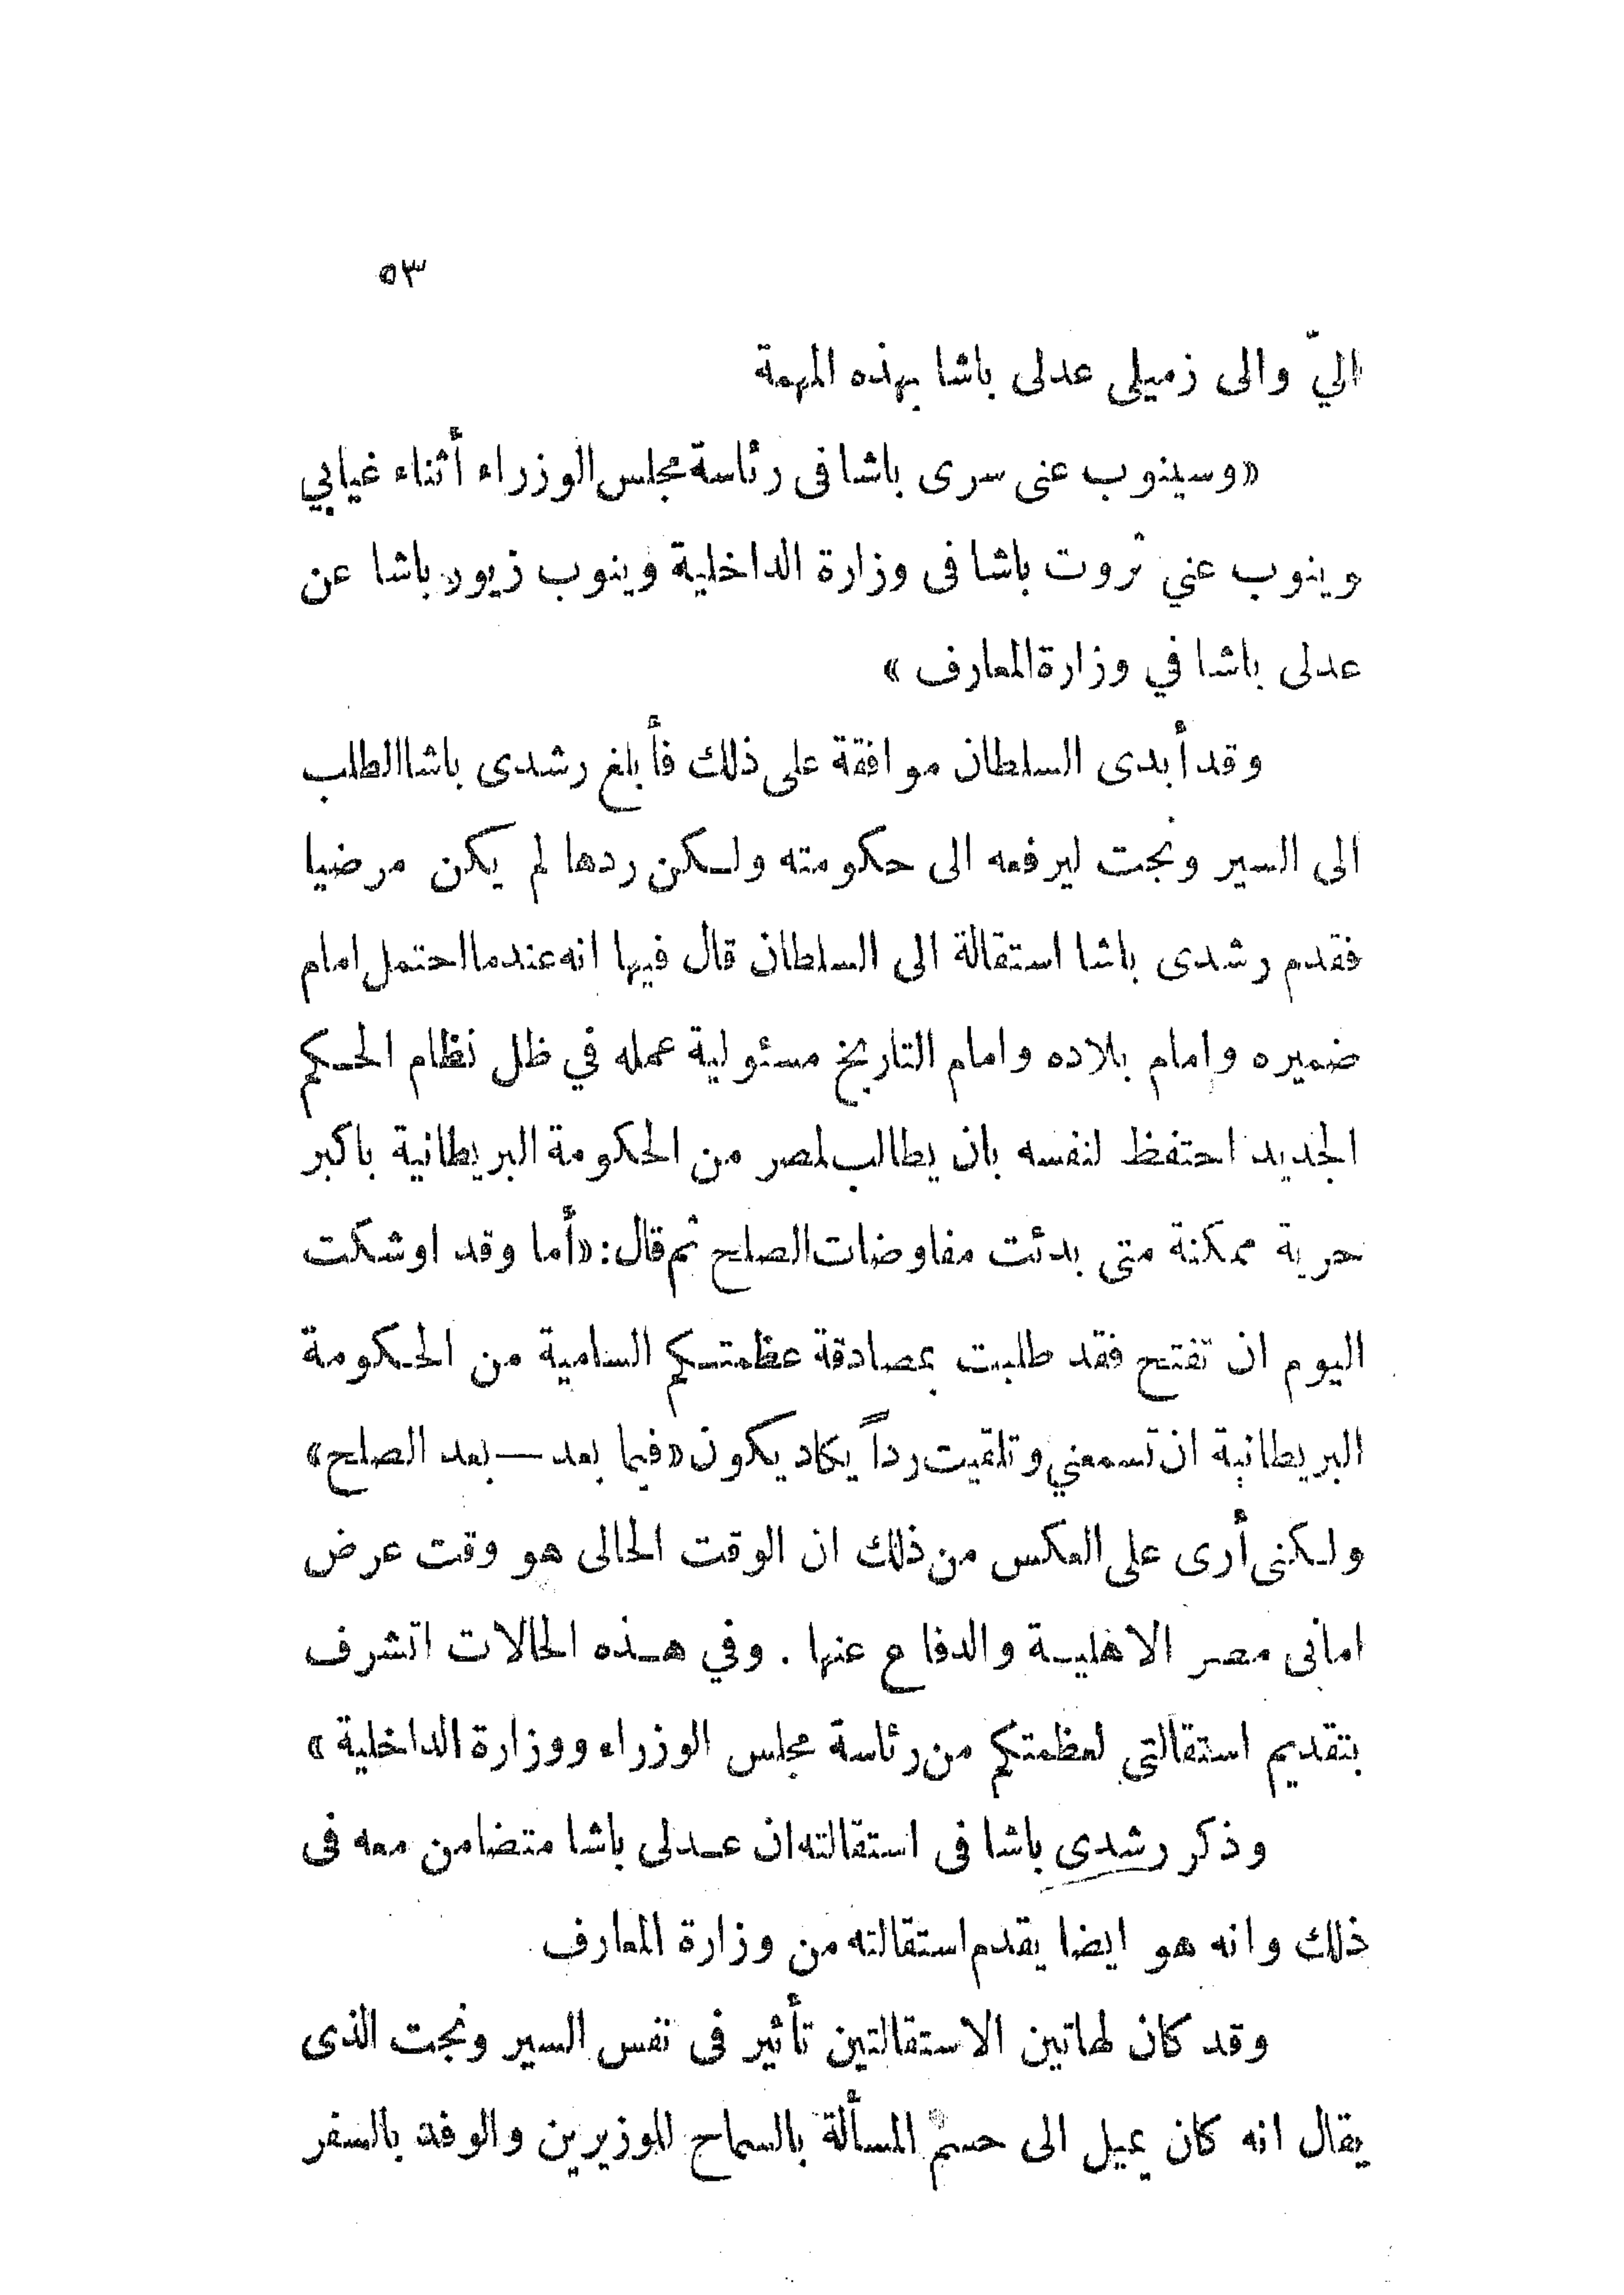 ٥٣
اليّ والى زميلى عدلى باشا بهذه المهمة
«وسينوب عنى سرى باشا فى رئاسة مجلس الوزراء أثناء غيابي
وينوب عني ثروت باشا فى وزارة الداخلية وينوب زيور باشا عن
عدلى باشا في وزارة المعارف »
وقد أبدى السلطان موافقة على ذلك فأبلغ رشدى باشا الطلب
الى السير ونجت ليرفعه الى حكومته ولكن ردها لم يكن مرضيا
فقدم رشدى باشا استقالة الى السلطان قال فيها انه عندما احتمل امام
ضميره وامام بلاده وامام التاريخ مسئولية عمله في ظل نظام الحكم
الجديد احتفظ لنفسه بان يطالب لمصر من الحكومة البريطانية باكبر
حرية ممكنة متى بدئت مفاوضات الصلح ثم قال: «أما وقد اوشكت
اليوم ان تفتح فقد طلبت بمصادقة عظمتكم السامية من الحكومة
البريطانية ان تسمعني وتلقيت رداً يكاد يكون «فيما بعد — بعد الصلح»
ولكنى أرى على العكس من ذلك ان الوقت الحالى هو وقت عرض
امانى مصر الاهلية والدفاع عنها . وفي هذه الحالات اتشرف
بتقديم استقالتى لعظمتكم من رئاسة مجلس الوزراء ووزارة الداخلية »
وذكر رشدى باشا فى استقالته ان عدلى باشا متضامن معه فى
ذلك وانه هو ايضا يقدم استقالته من وزارة المعارف
وقد كان لهاتين الاستقالتين تأثير فى نفس السير ونجت الذى
يقال انه كان يميل الى حسم المسألة بالسماح للوزيرين والوفد بالسفر